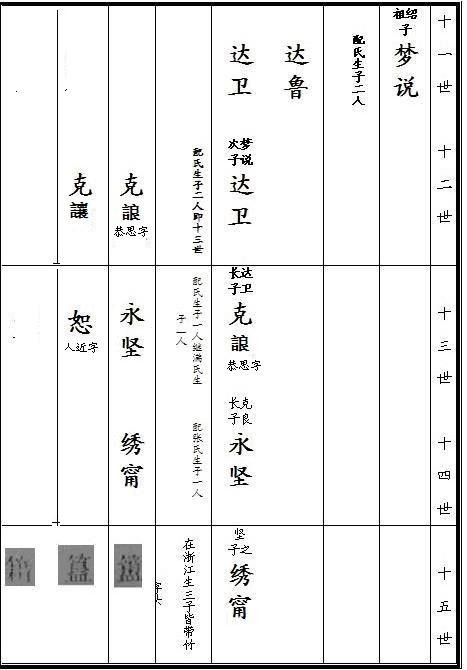 十一世
绍祖子
梦说
配氏生子二人
达鲁
达卫
十二世
梦说次子
达卫
配氏生子二人即十三世
克誏
字思恭
克讓
十三世
达卫长子
克誏
字思恭
配氏生子一人继满氏生
子一人
永坚
恕
字近人
十四世
克良长子
永坚
配张氏生子一人
绣甯
十五世
坚之子
绣甯
在浙江生三子皆带竹
字头